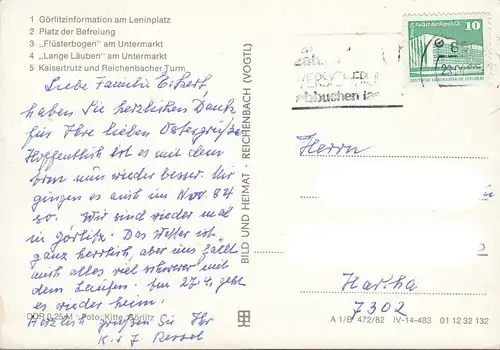 1 Görlitzinformation am Leninplatz
2 Platz der Befreiung
3 „Flüsterbogen" am Untermarkt
4 „Lange Läuben" am Untermarkt
5 Kaisertrutz und Reichenbacher Turm
Liebe Familie
haben Sie herzlichen Dank
für Ihre lieben Ostergrüße
Hoffentlich ist es mit dem
nun wieder besser. Mir
ging es auch im Nov. 84
so. Wir sind wieder mal
in Görlitz. Das Wetter ist
ganz herrlich, aber uns fällt
auch alles viel schwerer mit
dem Laufen. Am 27.4. geht
es wieder heim.
Herzlich grüßen Sie Ihr
K. + J.
DDR 0,25 M Foto: Kitte, Görlitz
BILD UND HEIMAT · REICHENBACH (VOGTL)
VERSICHERUN
abbuchen las
Palast der Republik
10
DEUTSCHE DEMOKRATISCHE REPUBLIK
Herrn
Hartha
7302
A 1/B 472/82 IV-14-483 01 12 32 132